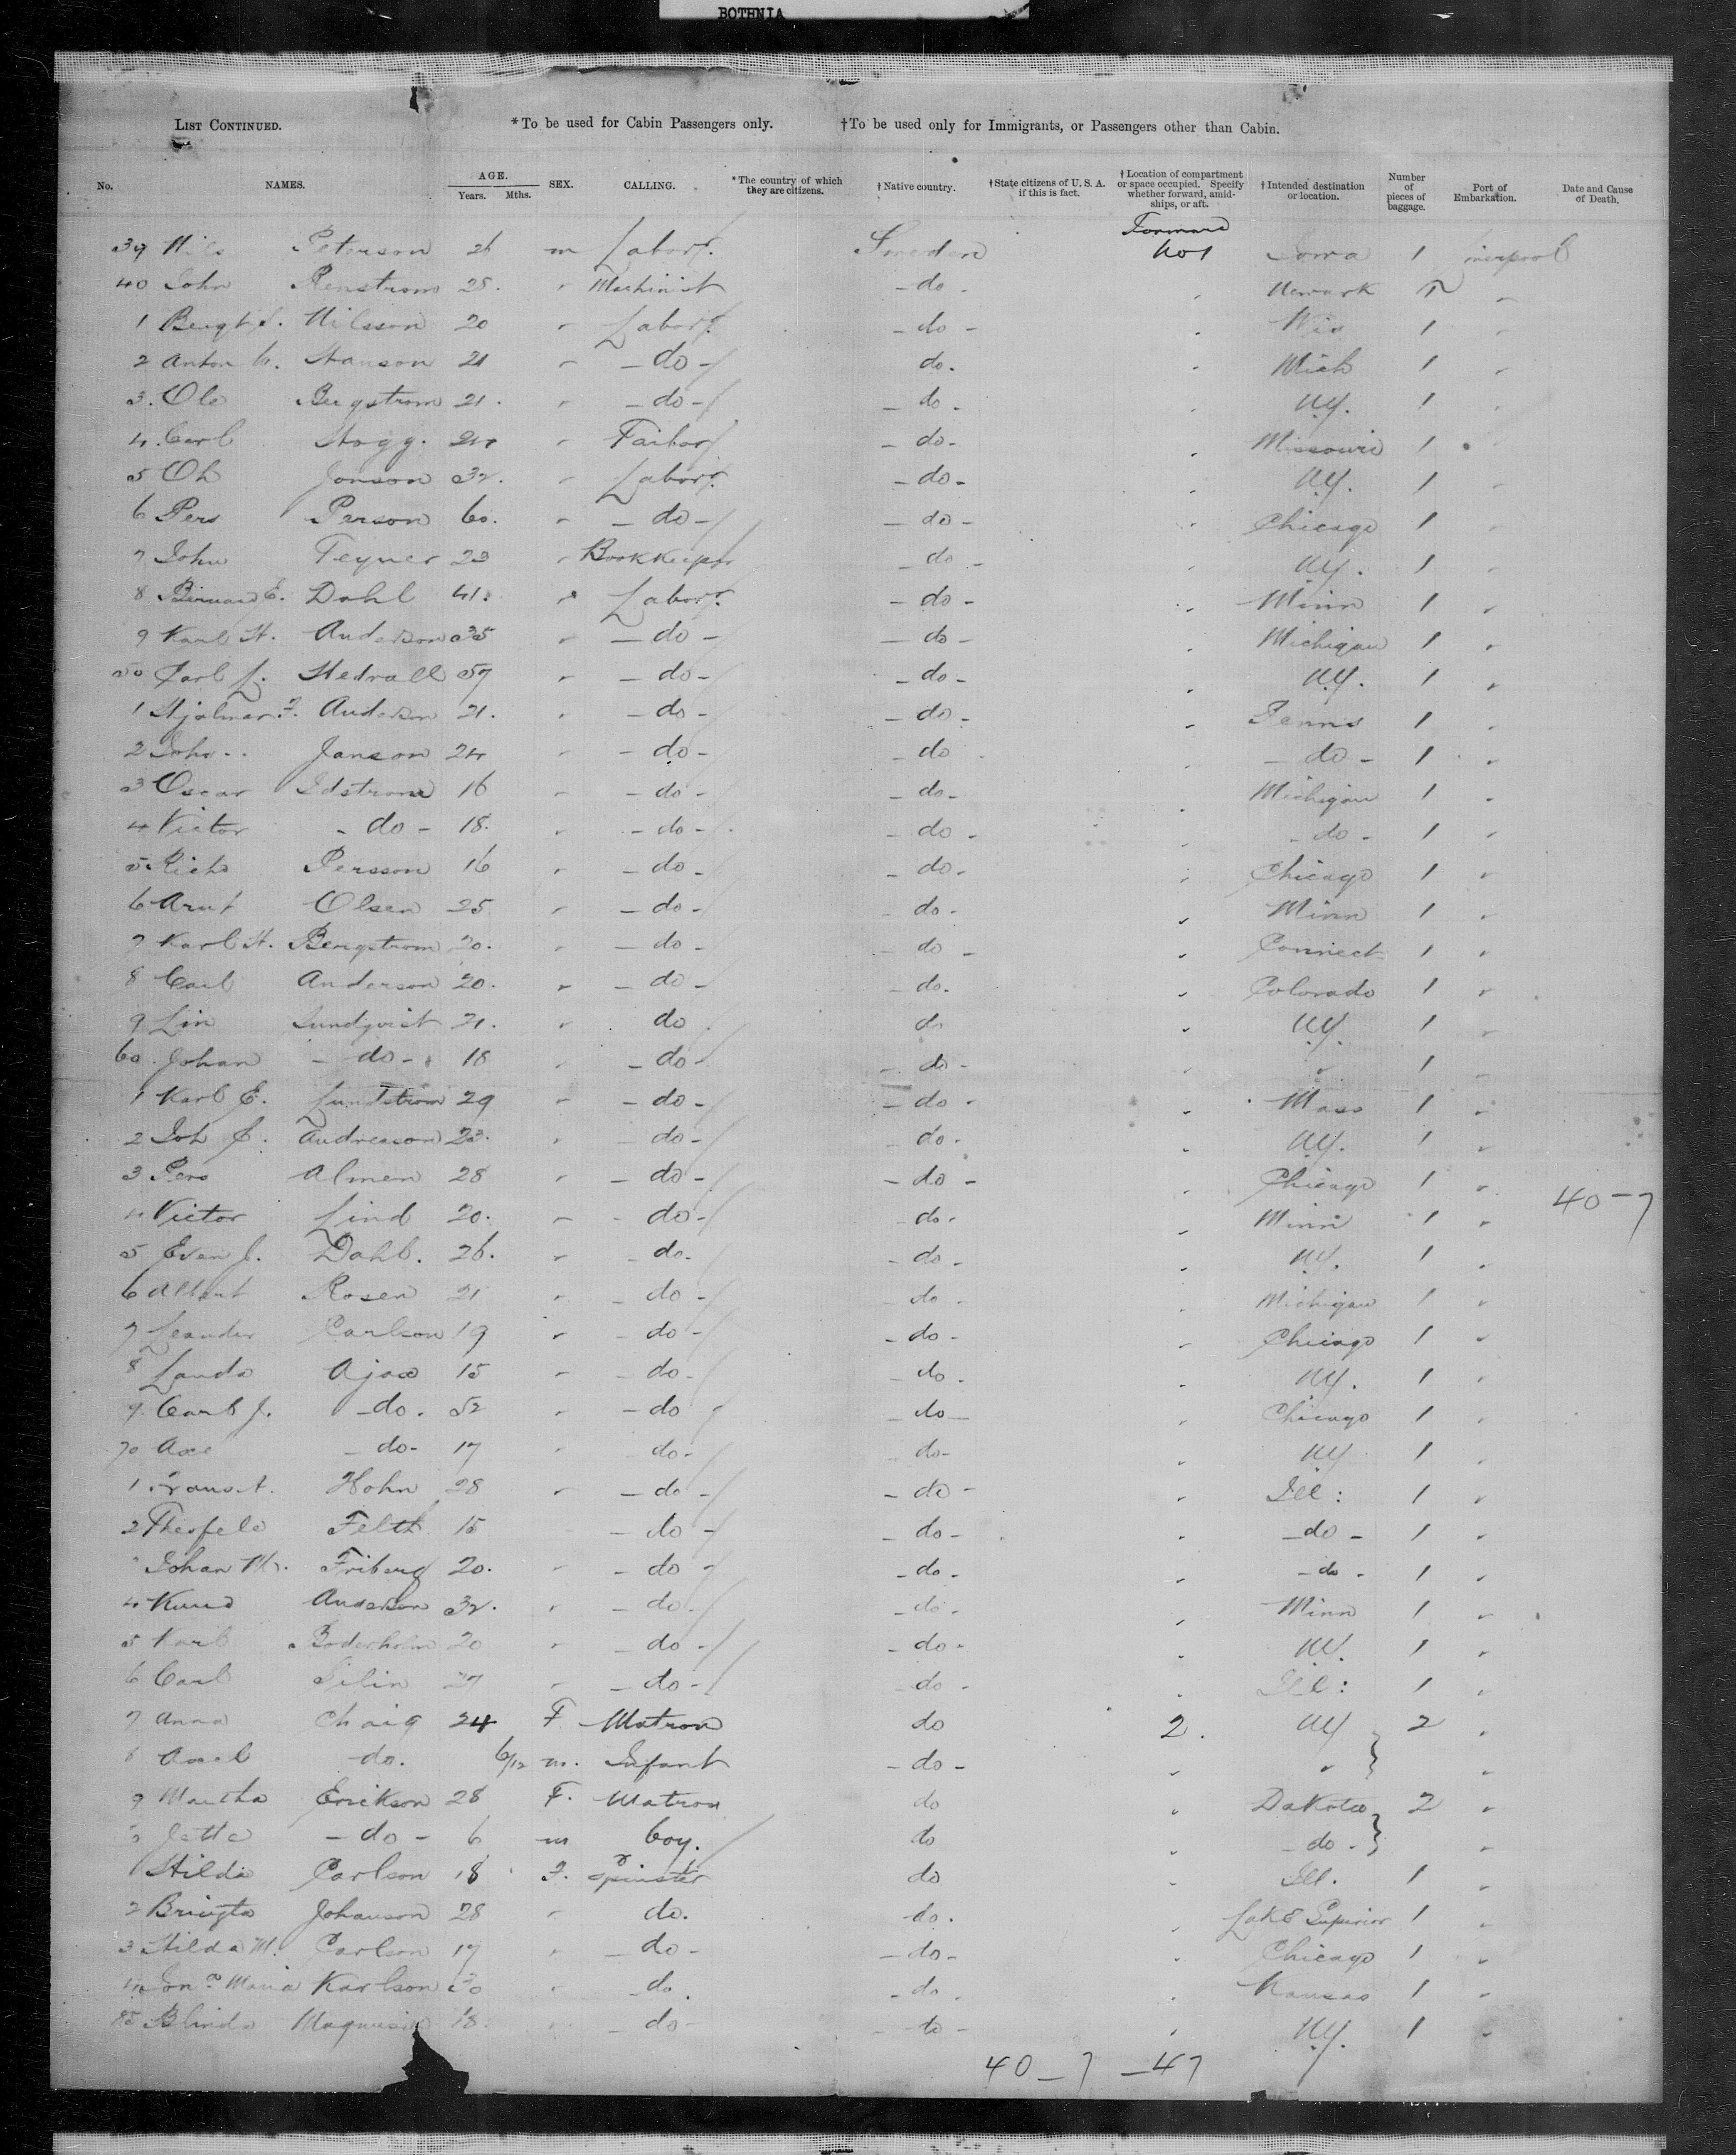 BOTHNIA
LIST CONTINUED. *To be used for Cabin Passengers only. †To be used only for Immigrants, or Passengers other than Cabin.
No. NAMES. AGE. Years. Mths. SEX. CALLING. *The country of which they are citizens. †Native country. †State citizens of U. S. A. if this is fact. †Location of compartment or space occupied. Specify whether forward, amidships, or aft. †Intended destination or location. Number of pieces of baggage. Port of Embarkation. Date and Cause of Death.
Forward
39 Nils Peterson 26 m Labor. Sweden No 1 Iowa 1 Liverpool
40 John Renstrom 28. " Machinist - do - " Newark 1 "
1 Bengt S. Nilsson 20 " Labor. - do - " Wis 1 "
2 Anton W. Hanson 21 " - do - do. " Mich 1 "
3. Ole Bergstrom 21. " - do - - do - " N.Y. 1 "
4. Carl Hogg. 24 " Tailor - do - " Missouri 1 "
5 Ol Jonson 32. " Labor. - do - " N.Y. 1 "
6 Pers Person 60. " - do - - do - " Chicago 1 "
7 John Teyner 23 " Bookkeeper - do - " N.Y. 1 "
8 E. Dahl 41. " Labor. - do - " Minn 1 "
9 Karl H. Anderson 35 " - do - - do - " Michigan 1 "
50 Carl L. Hedvall 57 " - do - - do - " N.Y. 1 "
1 Hjalmar F. Anderson 21. " - do - - do - " Penns 1 "
2 John Janson 24 " - do - - do " - do - 1 "
3 Oscar Idstrom 16 " - do - - do - " Michigan 1 "
4 Victor - do - 18. " - do - - do - " - do - 1 "
5 Persson 16 " - do - - do - " Chicago 1 "
6 Olsen 25 " - do - - do - " Minn 1 "
7 Karl H. Bergstrom 20. " - do - - do - " Connect 1 "
8 Carl Anderson 20. " - do - - do. " Colorado 1 "
9 Lin Lundqvist 21. " do do " N.Y. 1 "
60. Johan - do - 18 " - do - - do - " " 1 "
1 Karl E. Lundstrom 29 " - do - - do - " Mass 1 "
2 Joh E. Andreason 23. " - do - - do - " N.Y. 1 "
3 Pers Almen 28 " - do - - do - " Chicago 1 "
40-7
4 Victor Lind 20. " - do - - do - " Minn 1 "
5 Even J. Dahl. 26. " - do. - do - " N.Y. 1 "
6 Albert Rosen 21 " - do - - do - " Michigan 1 "
7 Leander Carlson 19 " - do - - do - " Chicago 1 "
8 Ajax 15 " - do - - do - " N.Y. 1 "
9. Carl J. - do. 52 " - do - do - " Chicago 1 "
70 Axe - do - 17 " - do - - do - " N.Y 1 "
1 Frans A. Hohn 28 " - do - - do - " Ill: 1 "
2 Felth 15 - do - - do - " - do - 1 "
Johan M. Friberg 20. " - do - - do - " - do - 1 "
4 Knud Anderson 32. " - do - - do - " Minn 1 "
5 Karl Boderholm 20 " - do - - do - " N.Y. 1 "
6 Carl Silin 27 " - do - - do - " Ill: 1 "
7 Anna Chaig 24 F Matron do 2. N.Y 2 "
8 Axel do. 6/12 m. Infant - do - " " "
9 Martha Erikson 28 F. Matron do " Dakota 2 "
Jette - do - 6 m boy. do " - do - "
1 Hilda Carlson 18 F. Spinster do " Ill. 1 "
2 Johanson 28 " do. - do. " Lake Superior 1 "
3 Hilda M. Carlson 17 " - do - - do - " Chicago 1 "
4 Maria Karlson 30 " - do. - do - " Kansas 1 "
85 Blinda 18. " - do - - do - " N.Y. 1 "
40-7-47